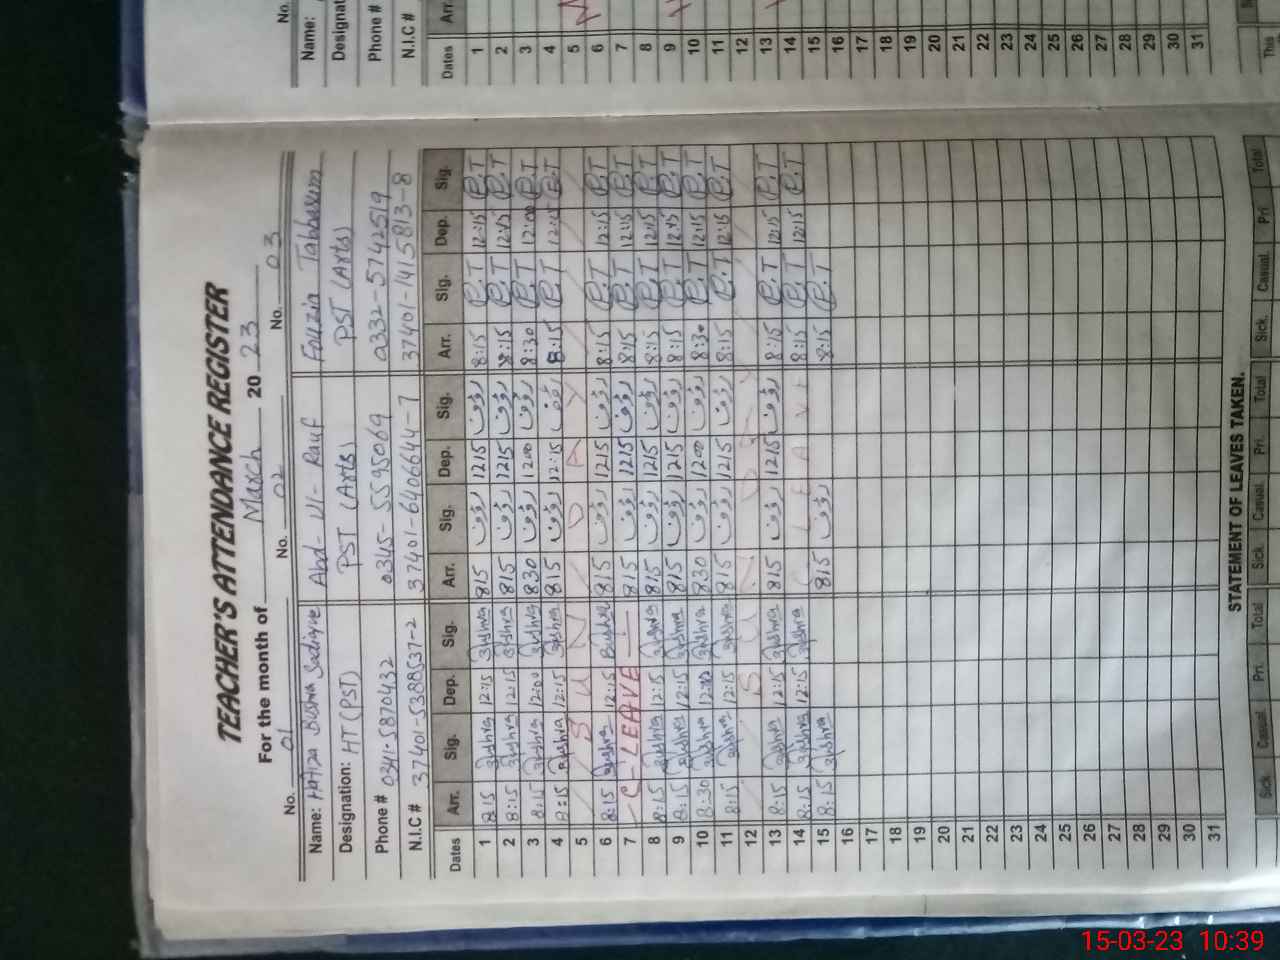 TEACHER'S ATTENDANCE REGISTER
For the month of March 20 23
No. 01 No. 02 No. 03
Name: Hafiza Bushra Sadique Abd-Ul-Rauf Fouzia Tabbasum
Designation: HT (PST) PST (Arts) PST (Arts)
Phone # 0341-5870432 0345-5595069 0332-5742519
N.I.C # 37401-5388537-2 37401-6406644-7 37401-1415813-8
Dates Arr. Sig. Dep. Sig. Arr. Sig. Dep. Sig. Arr. Sig. Dep. Sig.
1 8:15 Bushra 12:15 Bushra 815 رؤف 1215 رؤف 8:15 P.T 12:15 P.T
2 8:15 Bushra 12:15 Bushra 815 رؤف 1215 رؤف 8:15 P.T 12:15 P.T
3 8:15 Bushra 12:00 Bushra 830 رؤف 1200 رؤف 8:30 P.T 12:00 P.T
4 8:15 Bushra 12:15 Bushra 815 رؤف 12:15 رؤف 8:15 P.T 12:15 P.T
5 S U N D A Y
6 8:15 Bushra 12:15 Bushra 815 رؤف 1215 رؤف 8:15 P.T 12:15 P.T
7 C-LEAVE 815 رؤف 1215 رؤف 8:15 P.T 12:15 P.T
8 8:15 Bushra 12:15 Bushra 815 رؤف 1215 رؤف 8:15 P.T 12:15 P.T
9 8:15 Bushra 12:15 Bushra 815 رؤف 1215 رؤف 8:15 P.T 12:15 P.T
10 8:30 Bushra 12:00 Bushra 830 رؤف 1200 رؤف 8:30 P.T 12:15 P.T
11 8:15 Bushra 12:15 Bushra 815 رؤف 1215 رؤف 8:15 P.T 12:15 P.T
12 S U N D A Y
13 8:15 Bushra 12:15 Bushra 815 رؤف 1215 رؤف 8:15 P.T 12:15 P.T
14 8:15 Bushra 12:15 Bushra C LEAVE 8:15 P.T 12:15 P.T
15 8:15 Bushra 815 رؤف 8:15 P.T
16
17
18
19
20
21
22
23
24
25
26
27
28
29
30
31
STATEMENT OF LEAVES TAKEN.
Sick Casual Pri. Total Sick Casual Pri. Total Sick. Casual Pri Total
No.
Name:
Designat
Phone #
N.I.C #
Dates Arr.
1
2
3
4
5
6
7
8
9
10
11
12
13
14
15
16
17
18
19
20
21
22
23
24
25
26
27
28
29
30
31
This
15-03-23 10:39